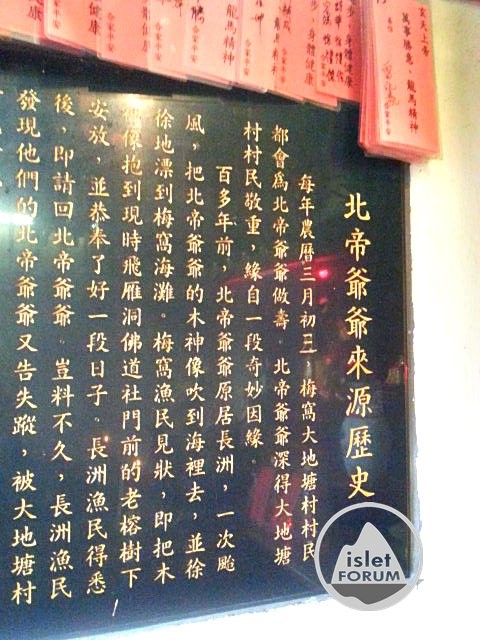 北帝爺爺來源歷史
每年農曆三月初三 梅窩大地塘村村民
都會為北帝爺爺做壽。北帝爺爺深得大地塘
村村民敬重，緣自一段奇妙因緣。
百多年前，北帝爺爺原居長洲，一次颱
風，把北帝爺爺的木神像吹到海裡去，並徐
徐地漂到梅窩海灘。梅窩漁民見狀，即把木
像抱到現時飛雁洞佛道社門前的老榕樹下
安放，並恭奉了好一段日子。長洲漁民得悉
後，即請回北帝爺爺。豈料不久，長洲漁民
發現他們的北帝爺爺又告失蹤，被大地塘村
玄天上帝
萬事勝意、龍馬精神
龍馬精神
身體健康
islet
FORUM